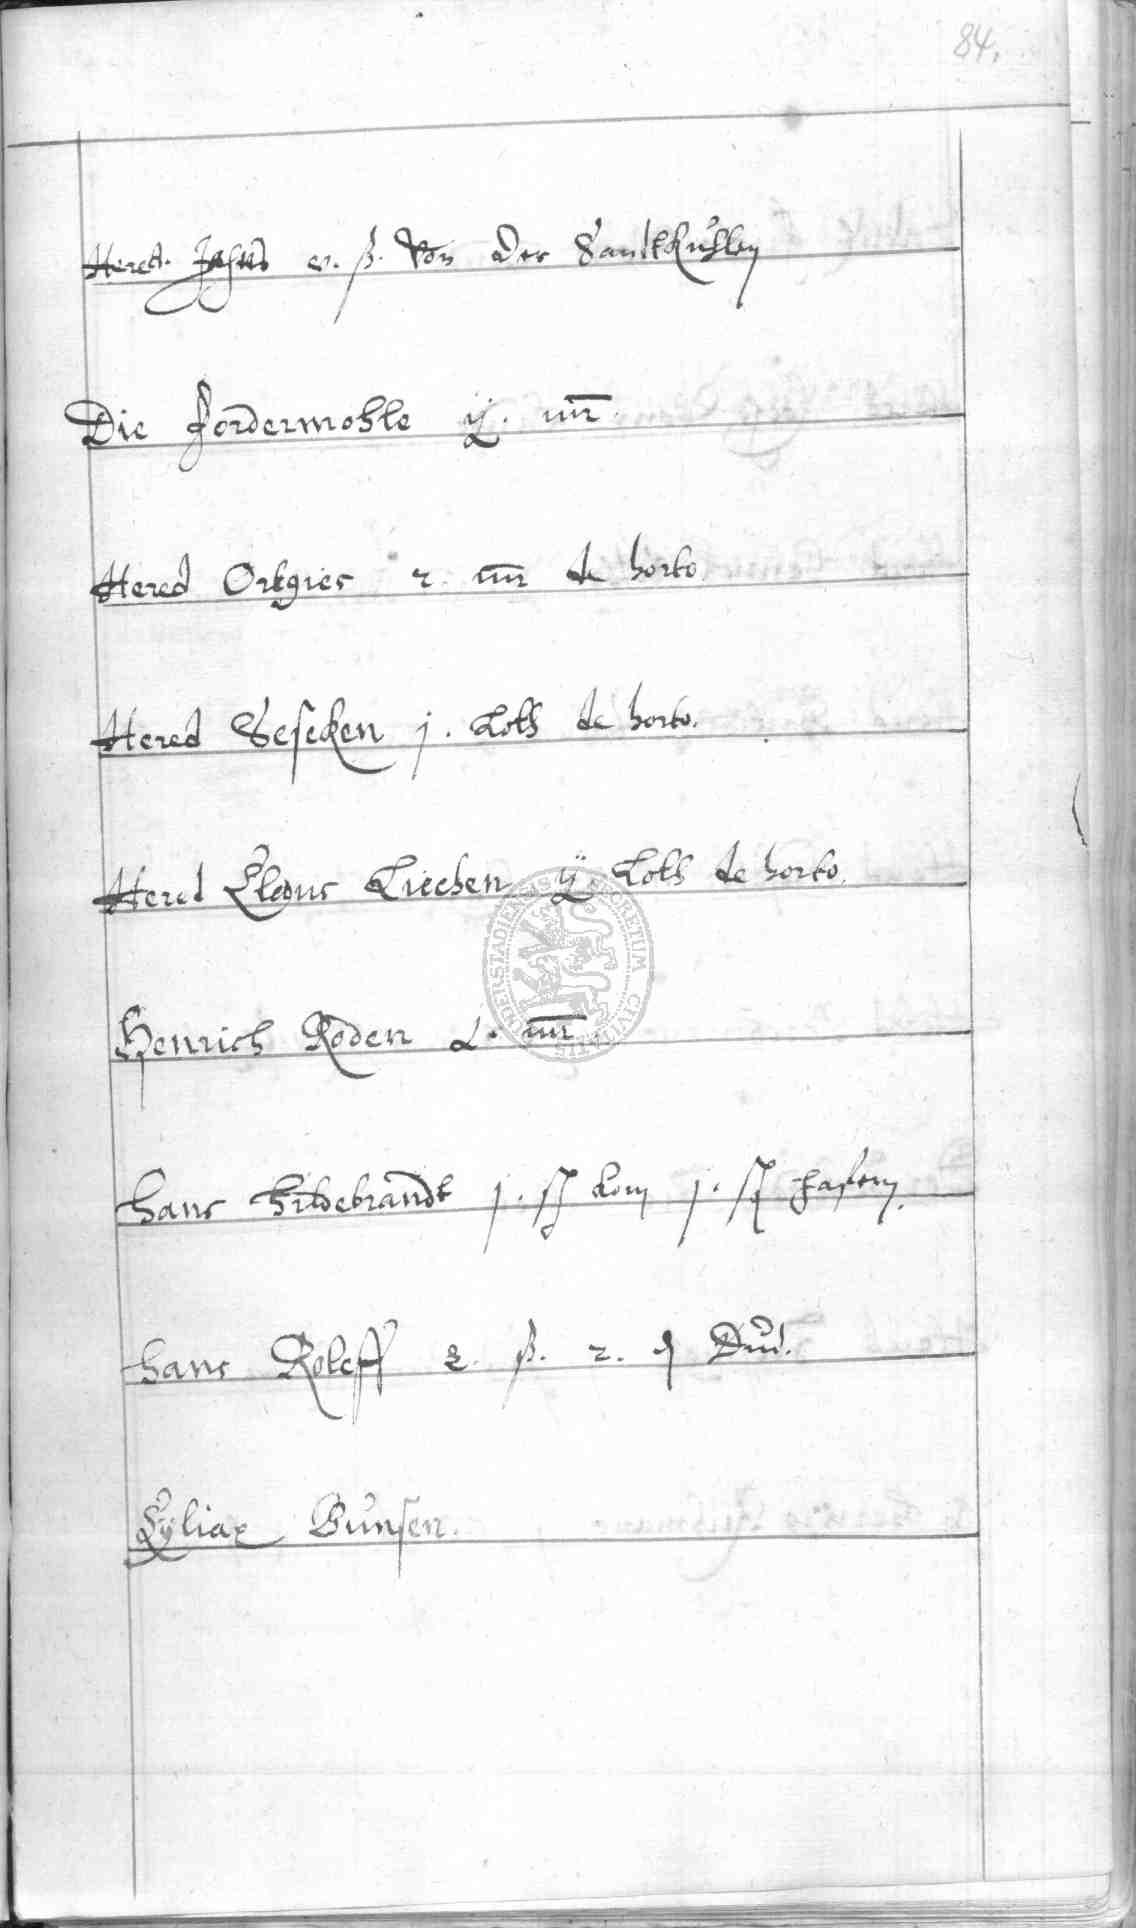 84.
Hered. v. ß. Von der Sandtkuhlen
Die Fordermohle ij. mr.
Hered Ortgies 2. mr de horto
Hered Seseken j. Loth de horto.
Hered Claus Liechen ij Loth de horto.
Henrich Roden mr.
Hans Hildebrandt j. ß korn j. ß hafern.
Hans Roleff 2. ß. 2. ₰ Dud.
Cyliax Bunsen.
SECRETUM CIVITATIS DUDERSTADIENSIS